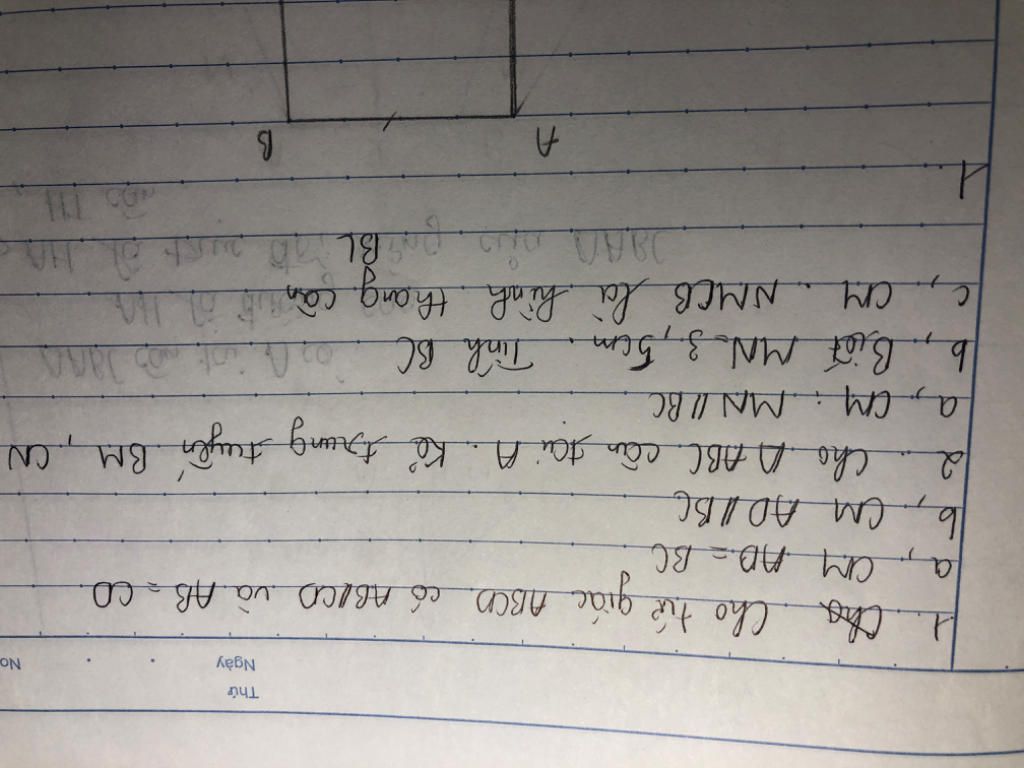 Thứ
Ngày No
1. Cho Cho tứ giác ABCD có AB//CD và AB = CD
a, CM AD = BC
b, CM AD//BC
2. Cho Δ ABC cân tại A. Kẻ trung tuyến BM, CN
a, CM: MN//BC
b, Biết MN=3,5cm. Tính BC
c, CM. NMCB là hình thang cân
BL
1
A B